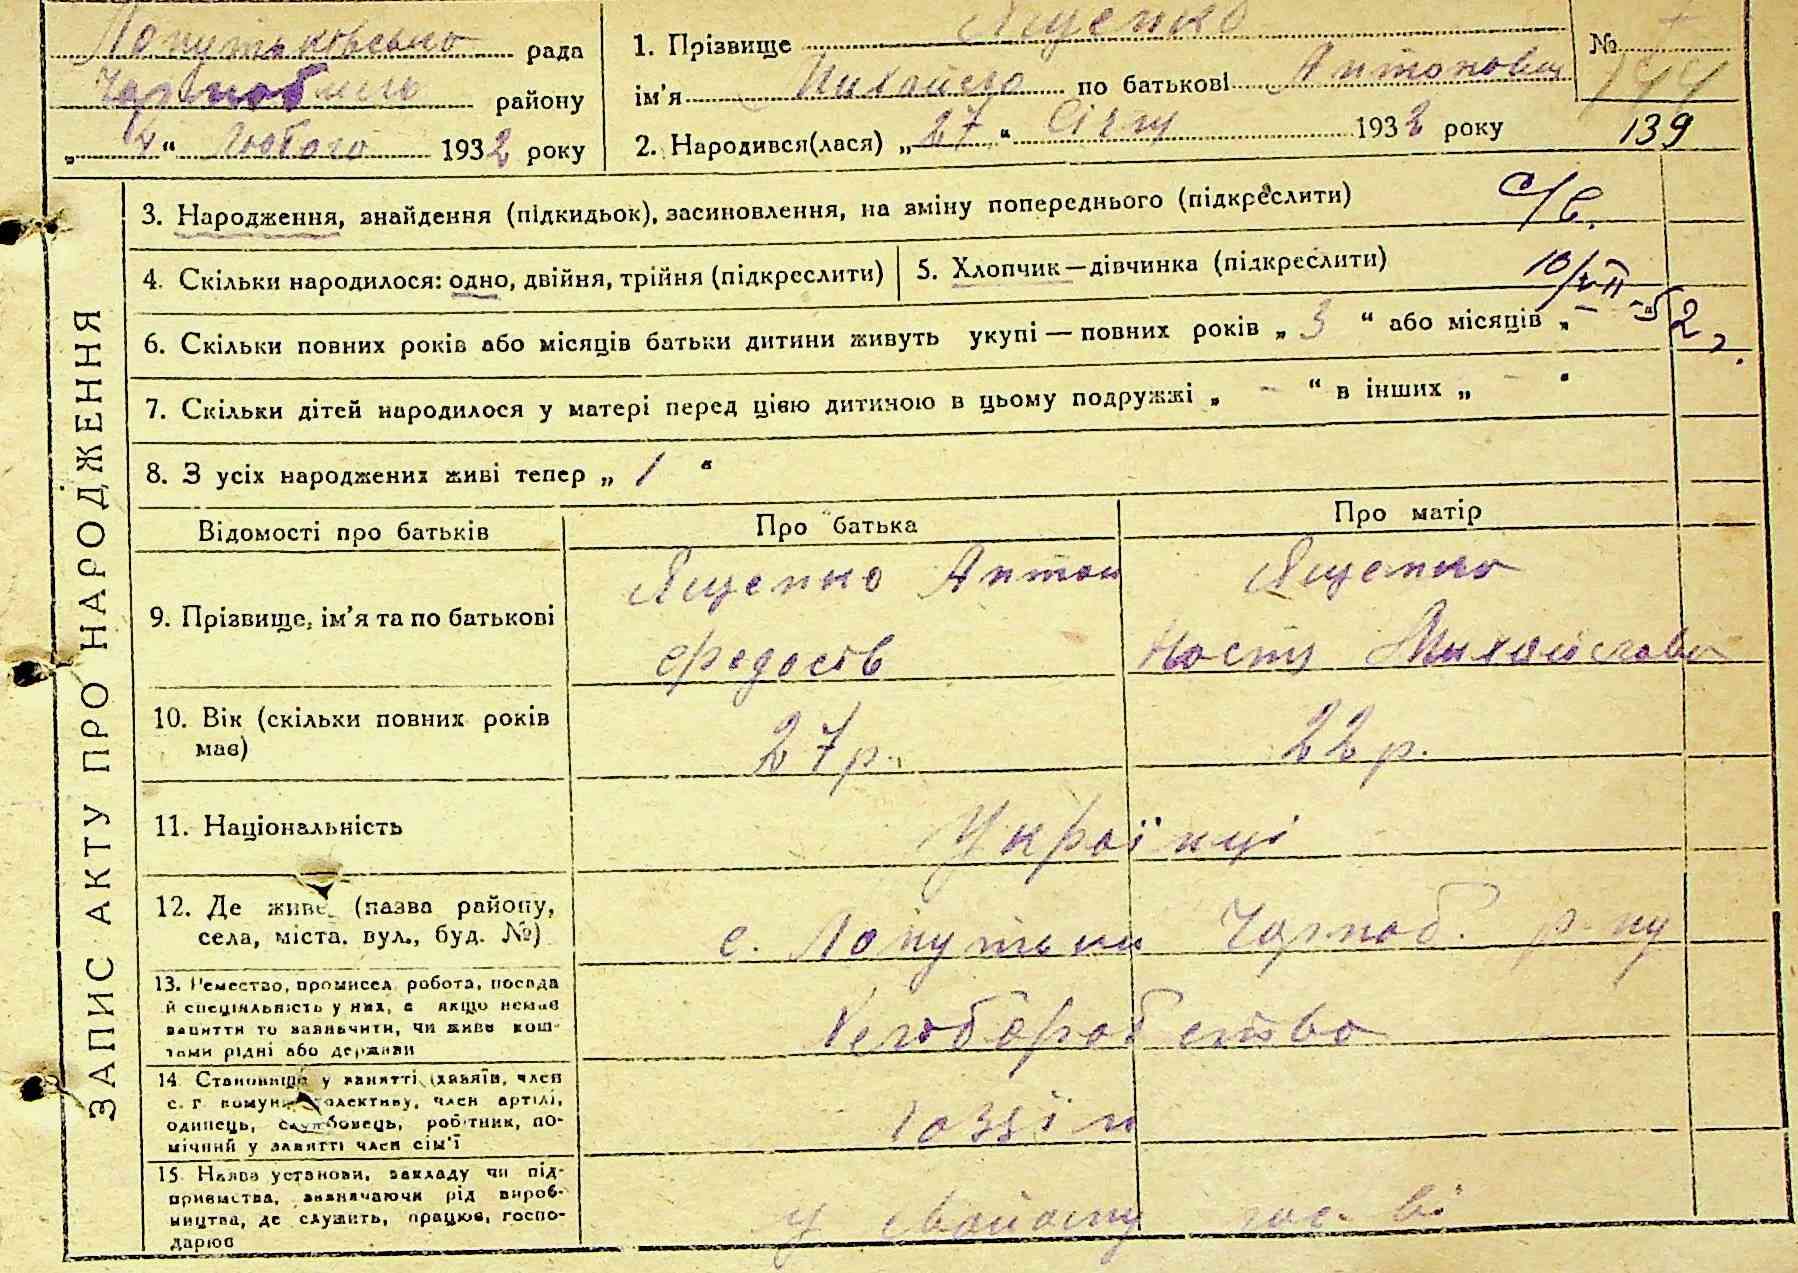 Лопутьковсько рада
Чорнобильс району
„ 4 “ Лютого 1932 року
1. Прізвище Ященко
ім'я Михайло по батькові Антонович
2. Народився(лася) „27“ Січня 1932 року
№
139
3. Народження, знайдення (підкидьок), засиновлення, на зміну попереднього (підкреслити)
с/с.
4. Скільки народилося: одно, двійня, трійня (підкреслити)
5. Хлопчик—дівчинка (підкреслити)
10/VII-52,
6. Скільки повних років або місяців батьки дитини живуть укупі — повних років „ 3 “ або місяців „ –
7. Скільки дітей народилося у матері перед цією дитиною в цьому подружжі „ – “ в інших „ – “
8. З усіх народжених живі тепер „ 1 “
ЗАПИС АКТУ ПРО НАРОДЖЕННЯ
Відомості про батьків
Про батька
Про матір
9. Прізвище, ім'я та по батькові
Ященко Антон
Федосів
Ященко
Настя Михайлова
10. Вік (скільки повних років
має)
27 р.
22 р.
11. Національність
Українці
12. Де живе (назва району,
села, міста. вул., буд. №)
с. Лопутьки Чорноб. р-ну
13. Ремество, промисел, робота, посада
й спеціяльність у них, а якщо немає
заняття то зазначити, чи живе кош-
тами рідні або держави
Хліборобство
14. Становище у занятті (хазяїн, член
с. г. комуни, колективу, член артілі,
одинець, службовець, робітник, по-
мічний у занятті член сім'ї
15. Назва установи, закладу чи під-
приємства, зазначаючи рід вироб-
ництва, де служить, працює, госпо-
дарює
у свойому гос-ві